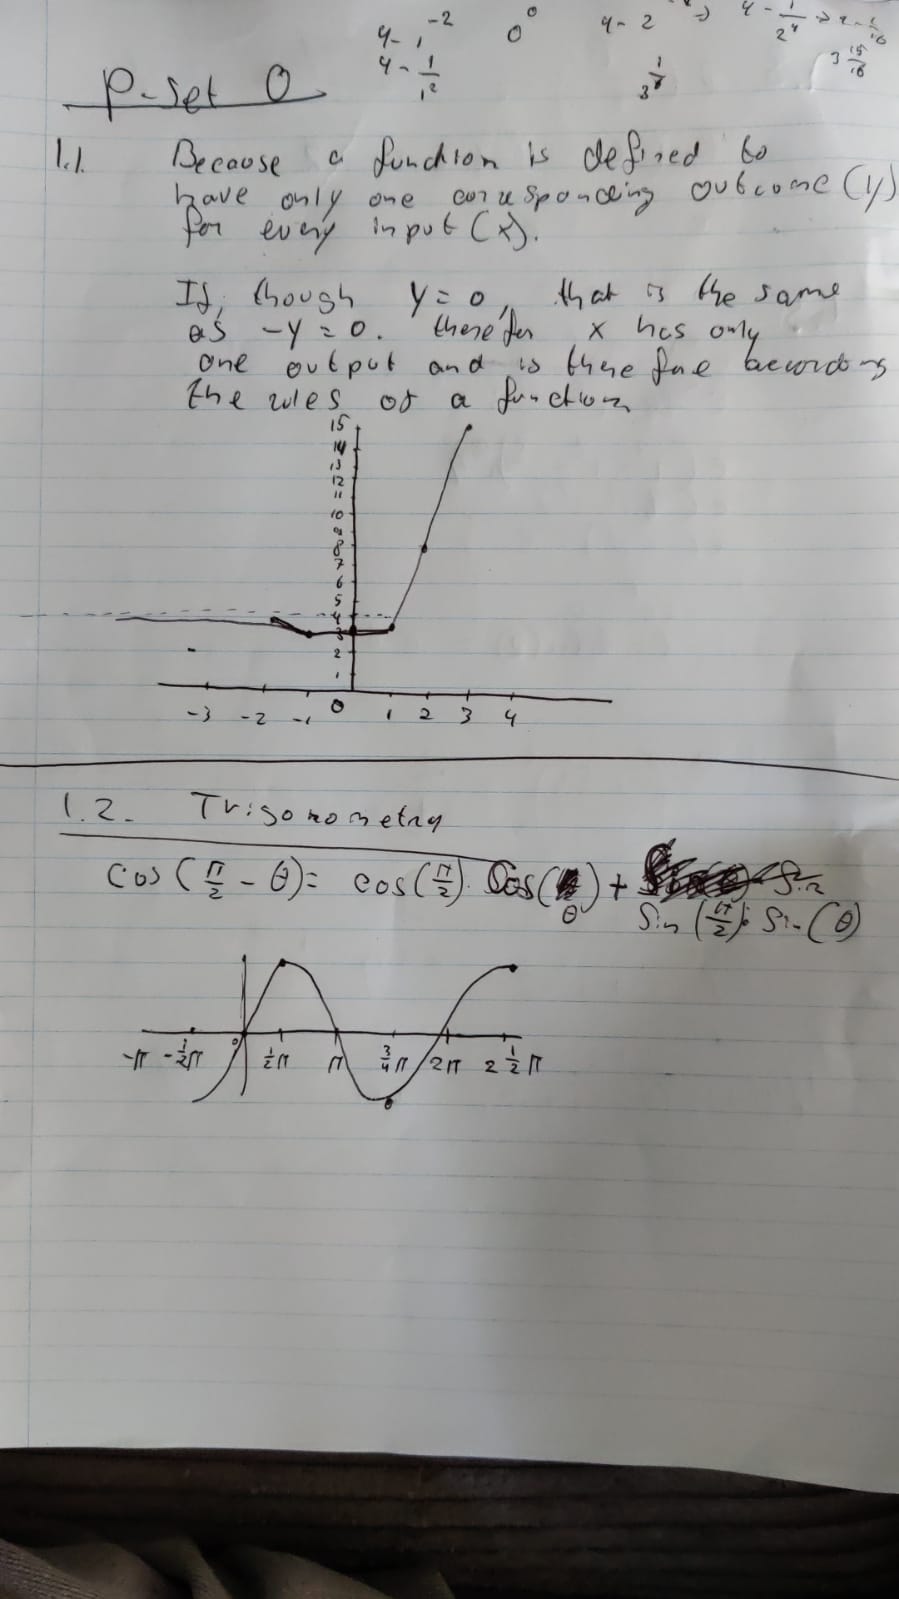 4-1⁻²
0⁰
4-2
4-1/1²
3 15/16
P-Set 0
1.1. Because a function is defined to
have only one corresponding outcome (y)
for every input (x).
If, though y=0, that is the same
as -y=0. therefor x has only
one output and is therefore according
the rules of a function
15
14
13
12
11
10
9
8
7
6
5
4
3
2
1
-3 -2 -1 0 1 2 3 4
1.2. Trigonometry
cos(π/2 - θ)= cos(π/2)·Cos(θ)+
Sin(π/2)·Sin(θ)
-π -1/2π 0 1/2π π 3/4π 2π 2 1/2π